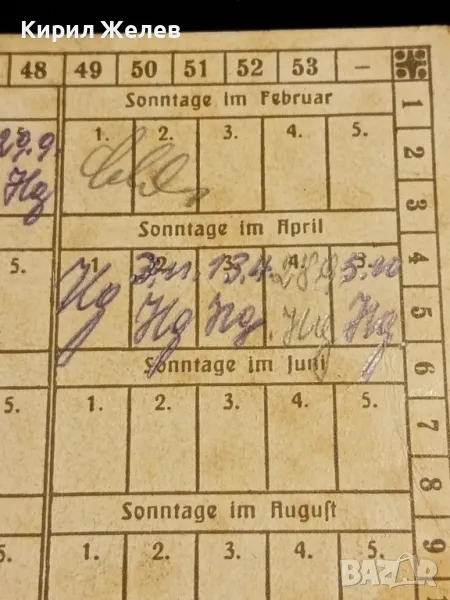 Кирил Желев
48 49 50 51 52 53 –
Sonntage im Februar
29.9. 1. 2. 3. 4. 5. 1
Hg 2
3
Sonntage im April
5. 1 3.11. 13.4. 28.9. 5.10 4
Hg Hg Hg. Hg Hg 5
Sonntage im Juni 6
5. 1. 2. 3. 4. 5. 7
8
Sonntage im August
5. 1. 2. 3. 4. 5. 9
BAZAR